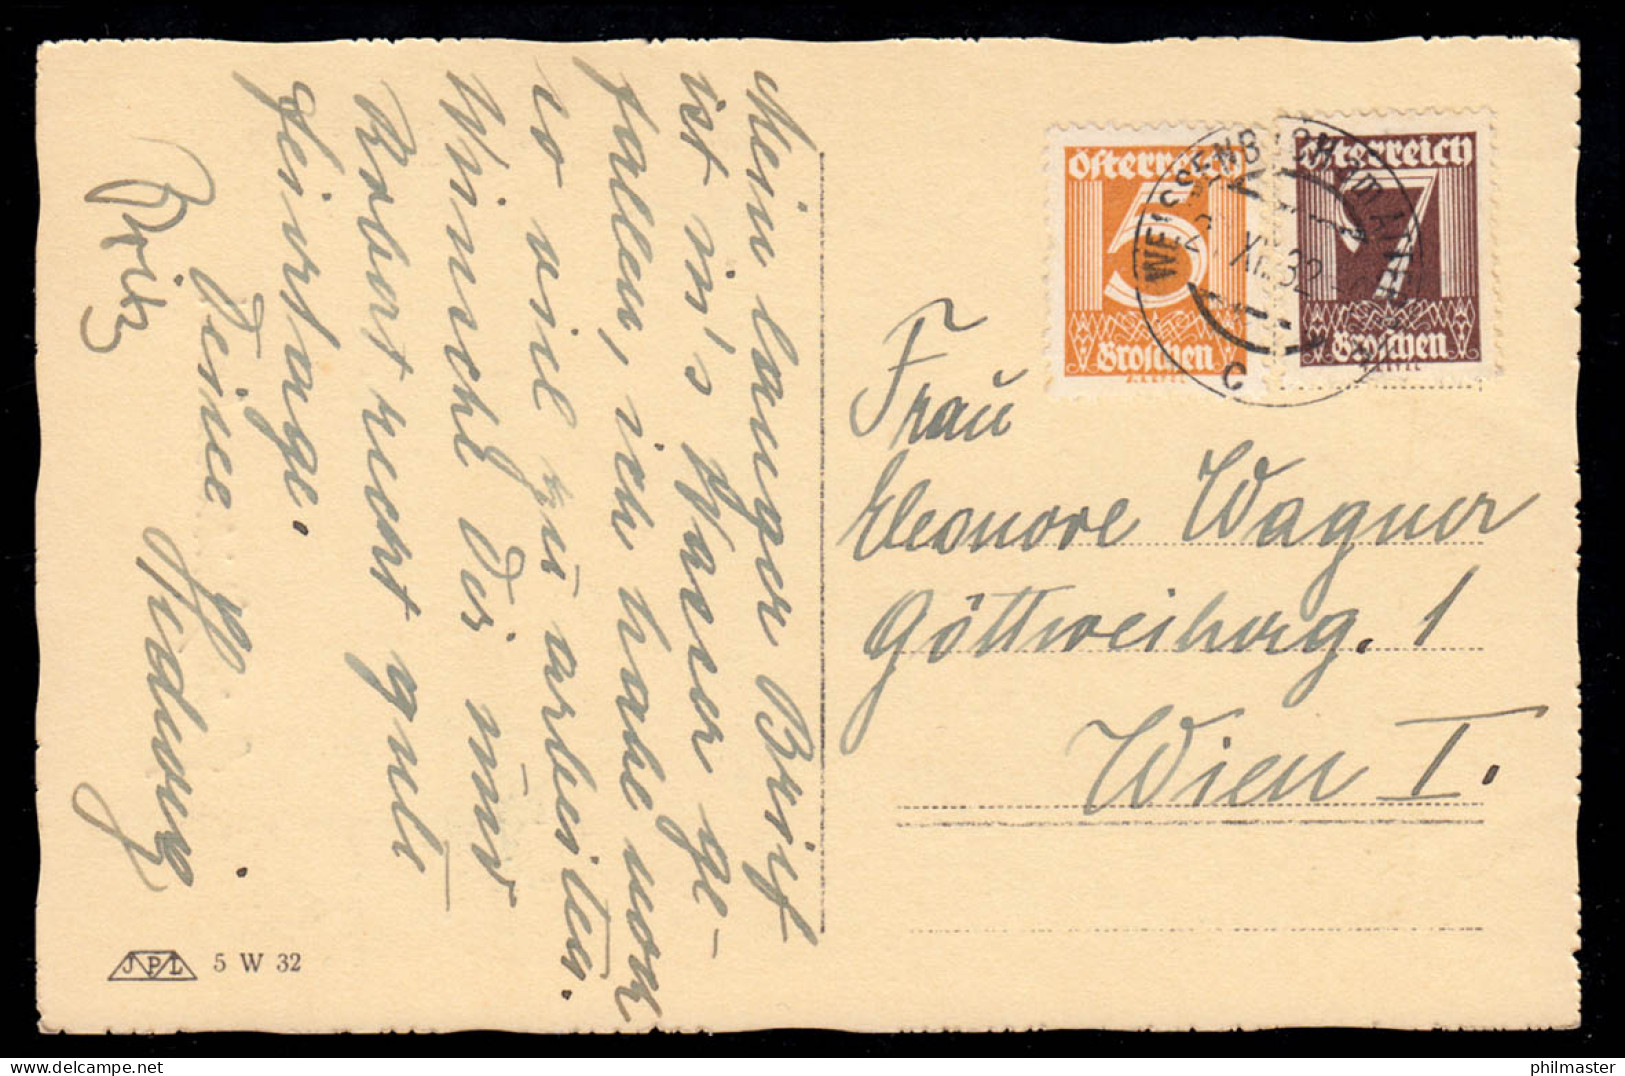 Mein langer Brief
ist in's Wasser ge-
fallen, ich habe noch
so viel zu arbeiten.
Wünsche Dir und
Robert recht gute
Feiertage.
Deine
Hedwig
Österreich
5
Groschen
Österreich
7
Groschen
WEISSENBACH
XII 32
C
Frau
Eleonore Wagner
Göttweiherg. 1
Wien I.
JPL 5 W 32
philmaster